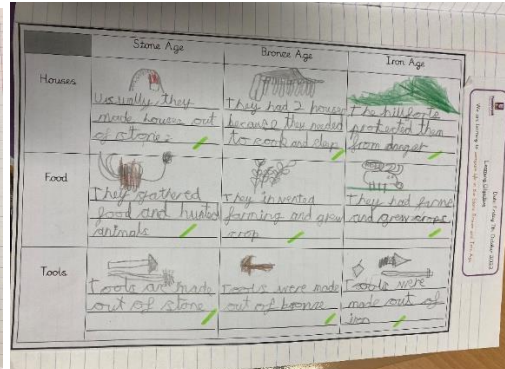 Stone Age
Bronze Age
Iron Age
Houses
Usually they
made houses out
of stone.
They had 2 houses
because they needed
to cook and sleep
The hillforts
protected them
from danger
Food
They gathered
food and hunted
animals
They invented
farming and grew
crop
They had farms
and grew crops
Tools
Tools are made
out of stone
Tools were made
out of bronze
Tools were
made out of
iron
Date: Friday 7th October 2022
Learning Objective
We are learning to compare life in the Stone, Bronze and Iron Age